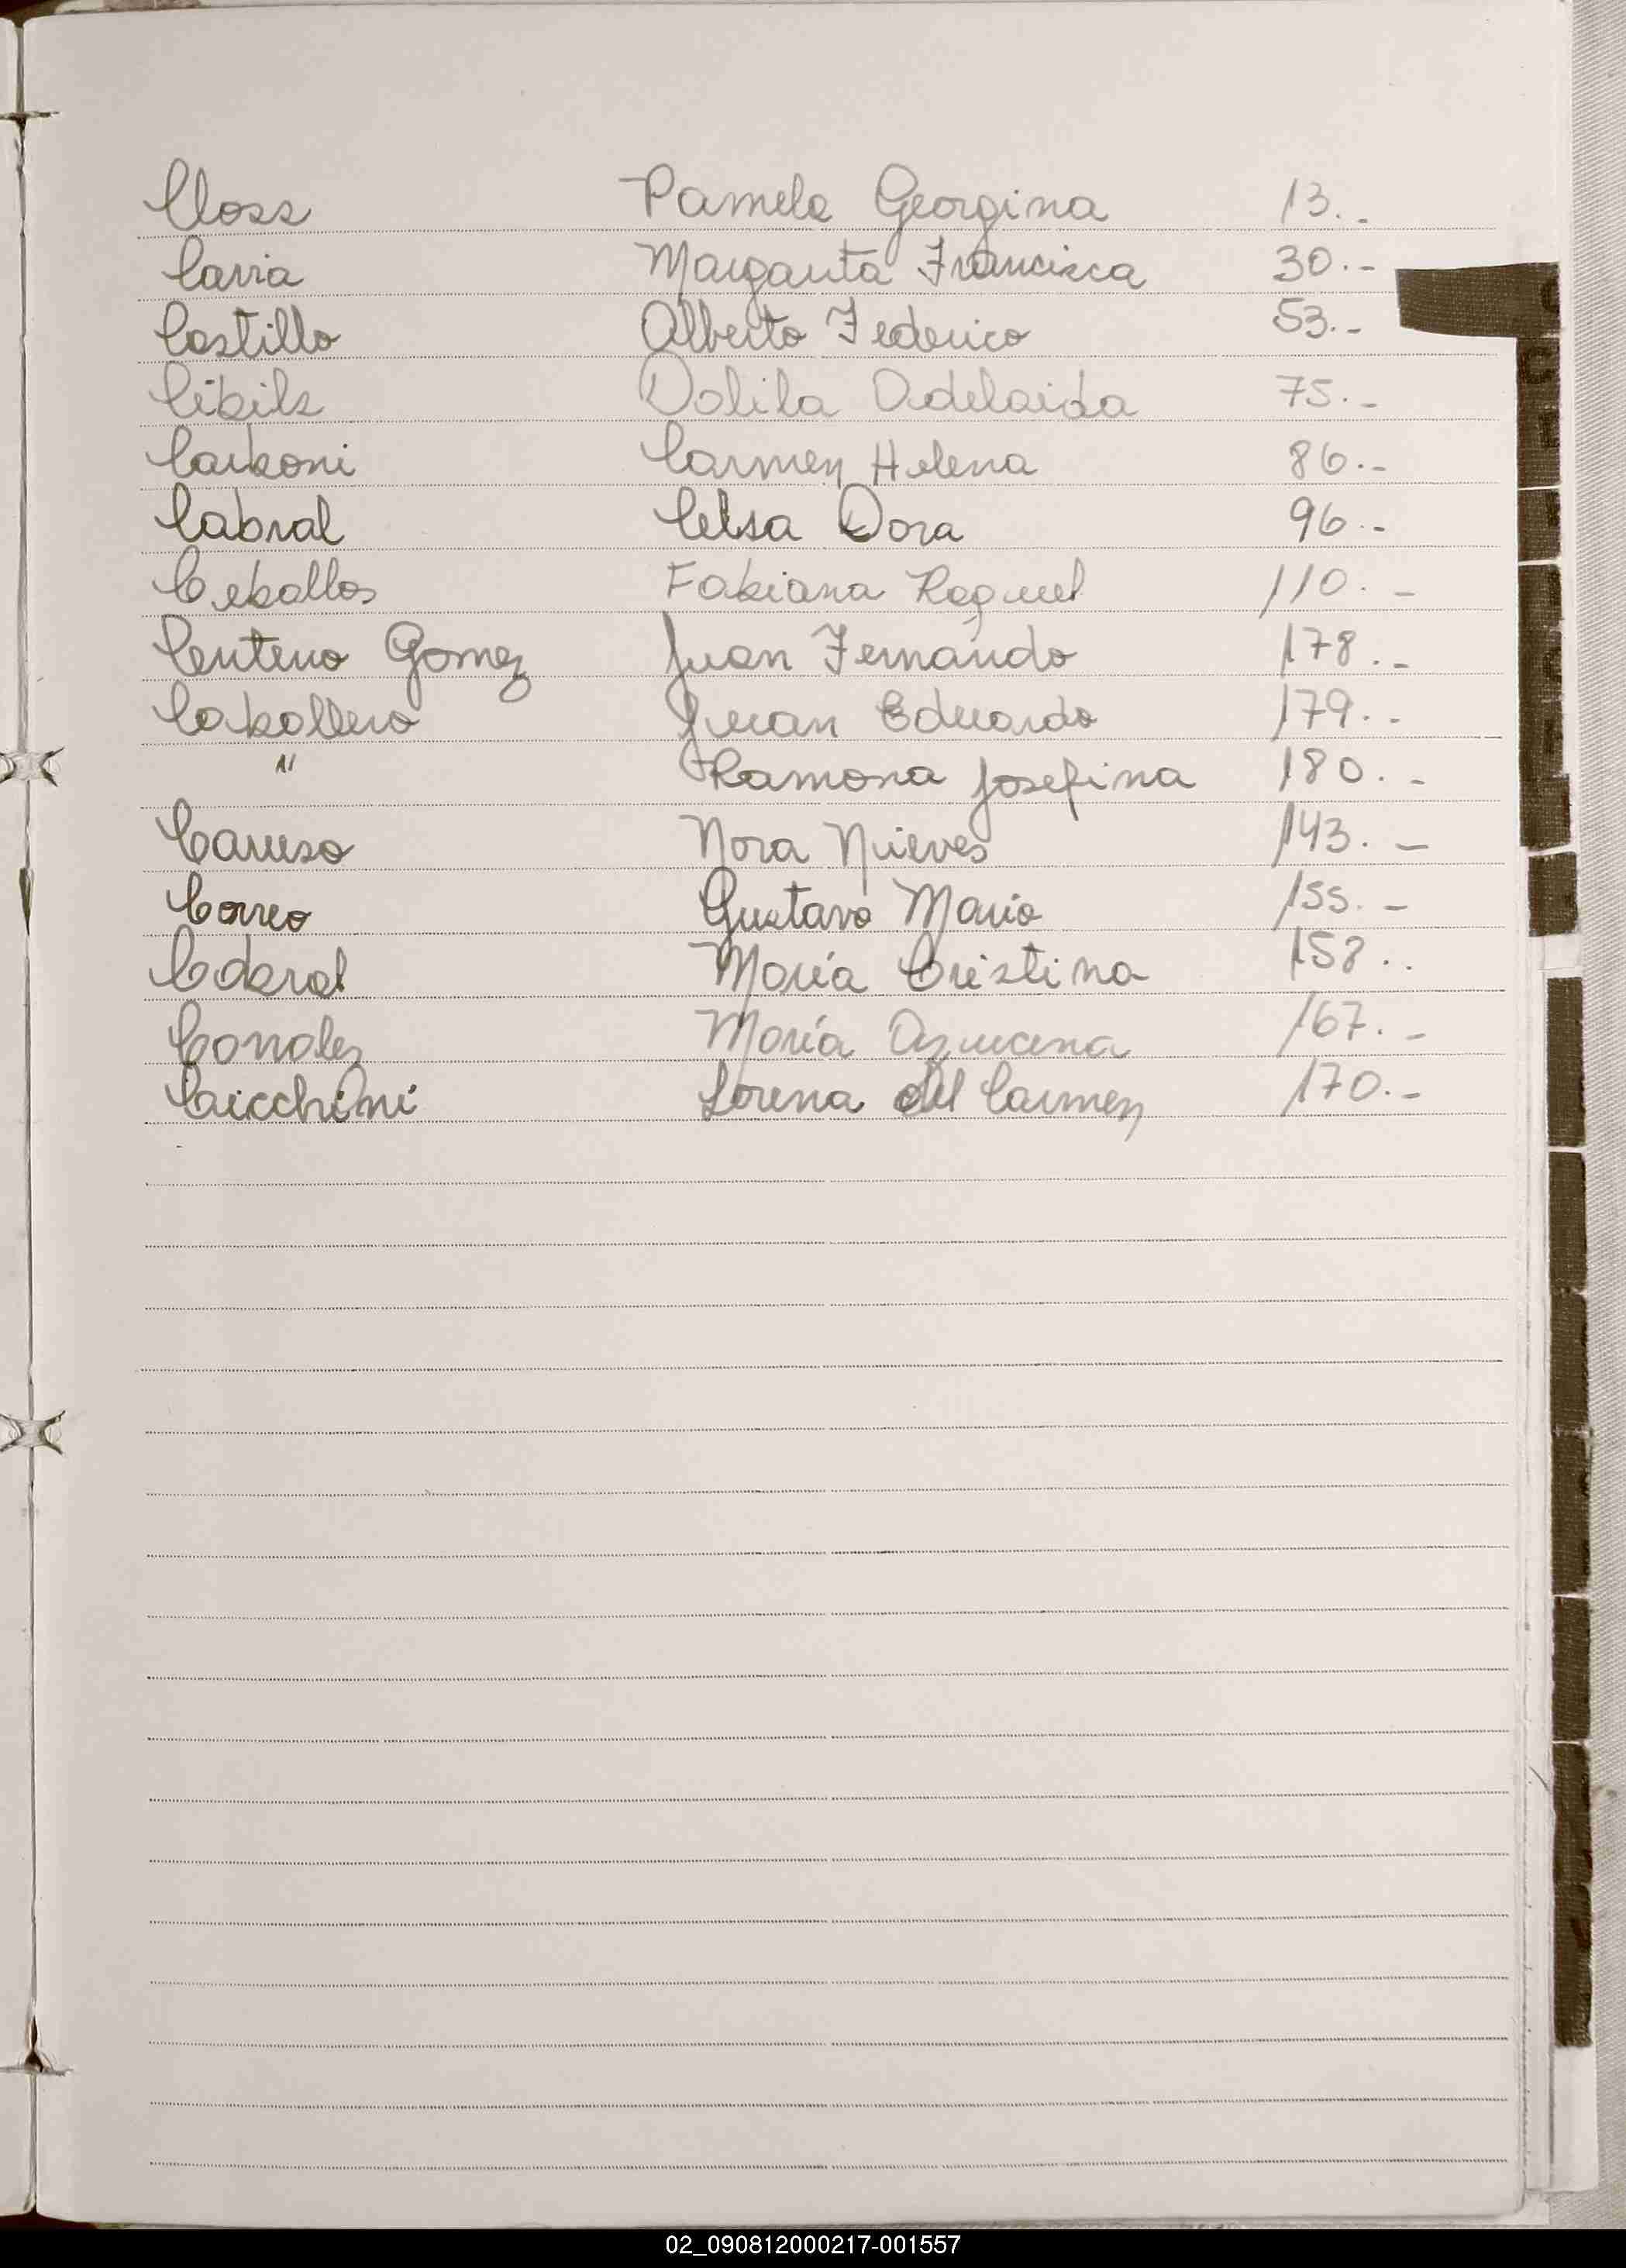 Closs Pamela Georgina 13.-
Caria Margarita Francisca 30.-
Castillo Alberto Federico 53.-
Cibils Dolila Adelaida 75.-
Carboni Carmen Helena 86.-
Cabral Celsa Dora 96.-
Ceballos Fabiana Raquel 110.-
Centeno Gomez Juan Fernando 178.-
Caballero Juan Eduardo 179.-
" Ramona Josefina 180.-
Caruso Nora Nieves 143.-
Correo Gustavo Mario 155.-
María Cristina 158.-
Canales María Azucena 167.-
Caicchini Lorena del Carmen 170.-
02_090812000217-001557